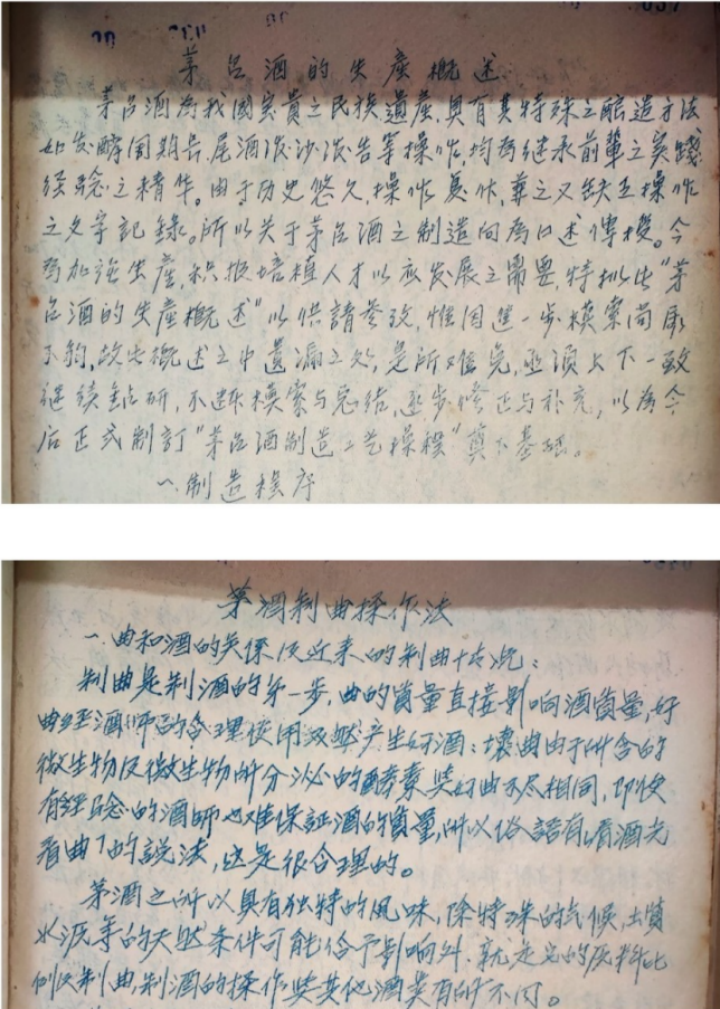 茅台酒的生產概述
茅台酒为我國宝貴之民族遺產,具有其特殊之釀造方法
如发酵周期長,尾酒泼沙,泼告等操作,均为继承前輩之实踐
经驗之精华。由于历史悠久,操作复什,兼之又缺乏操作
之文字記錄。所以关于茅台酒之制造向为口述傳授。今
为加強生產,积极培植人才以应发展之需要,特拟出"茅
台酒的生產概述"以供請参考,惟因進一步摸索尚
不夠,故此概述之中遺漏之处,是所难免,亟須上下一致
继续鉆研,不断摸索与总结,逐步修正与补充,以为今
后正式制訂"茅台酒制造工艺操程"奠下基础。
一.制造程序
茅酒制曲操作法
一.曲和酒的关係及近来的制曲情况:
制曲是制酒的第一步,曲的質量直接影响酒質量,好
曲经酒师的合理使用必然产生好酒;壞曲由于所含的
微生物及微生物所分泌的酵素與好曲不尽相同,即使
有经驗的酒师也难保証酒的質量,所以俗語有"看酒先
看曲"的說法,这是很合理的。
茅酒之所以具有独特的风味,除特殊的气候,土質
水源等的天然条件可能给予影响外,就是它的原料比
例及制曲,制酒的操作與其他酒类有所不同。